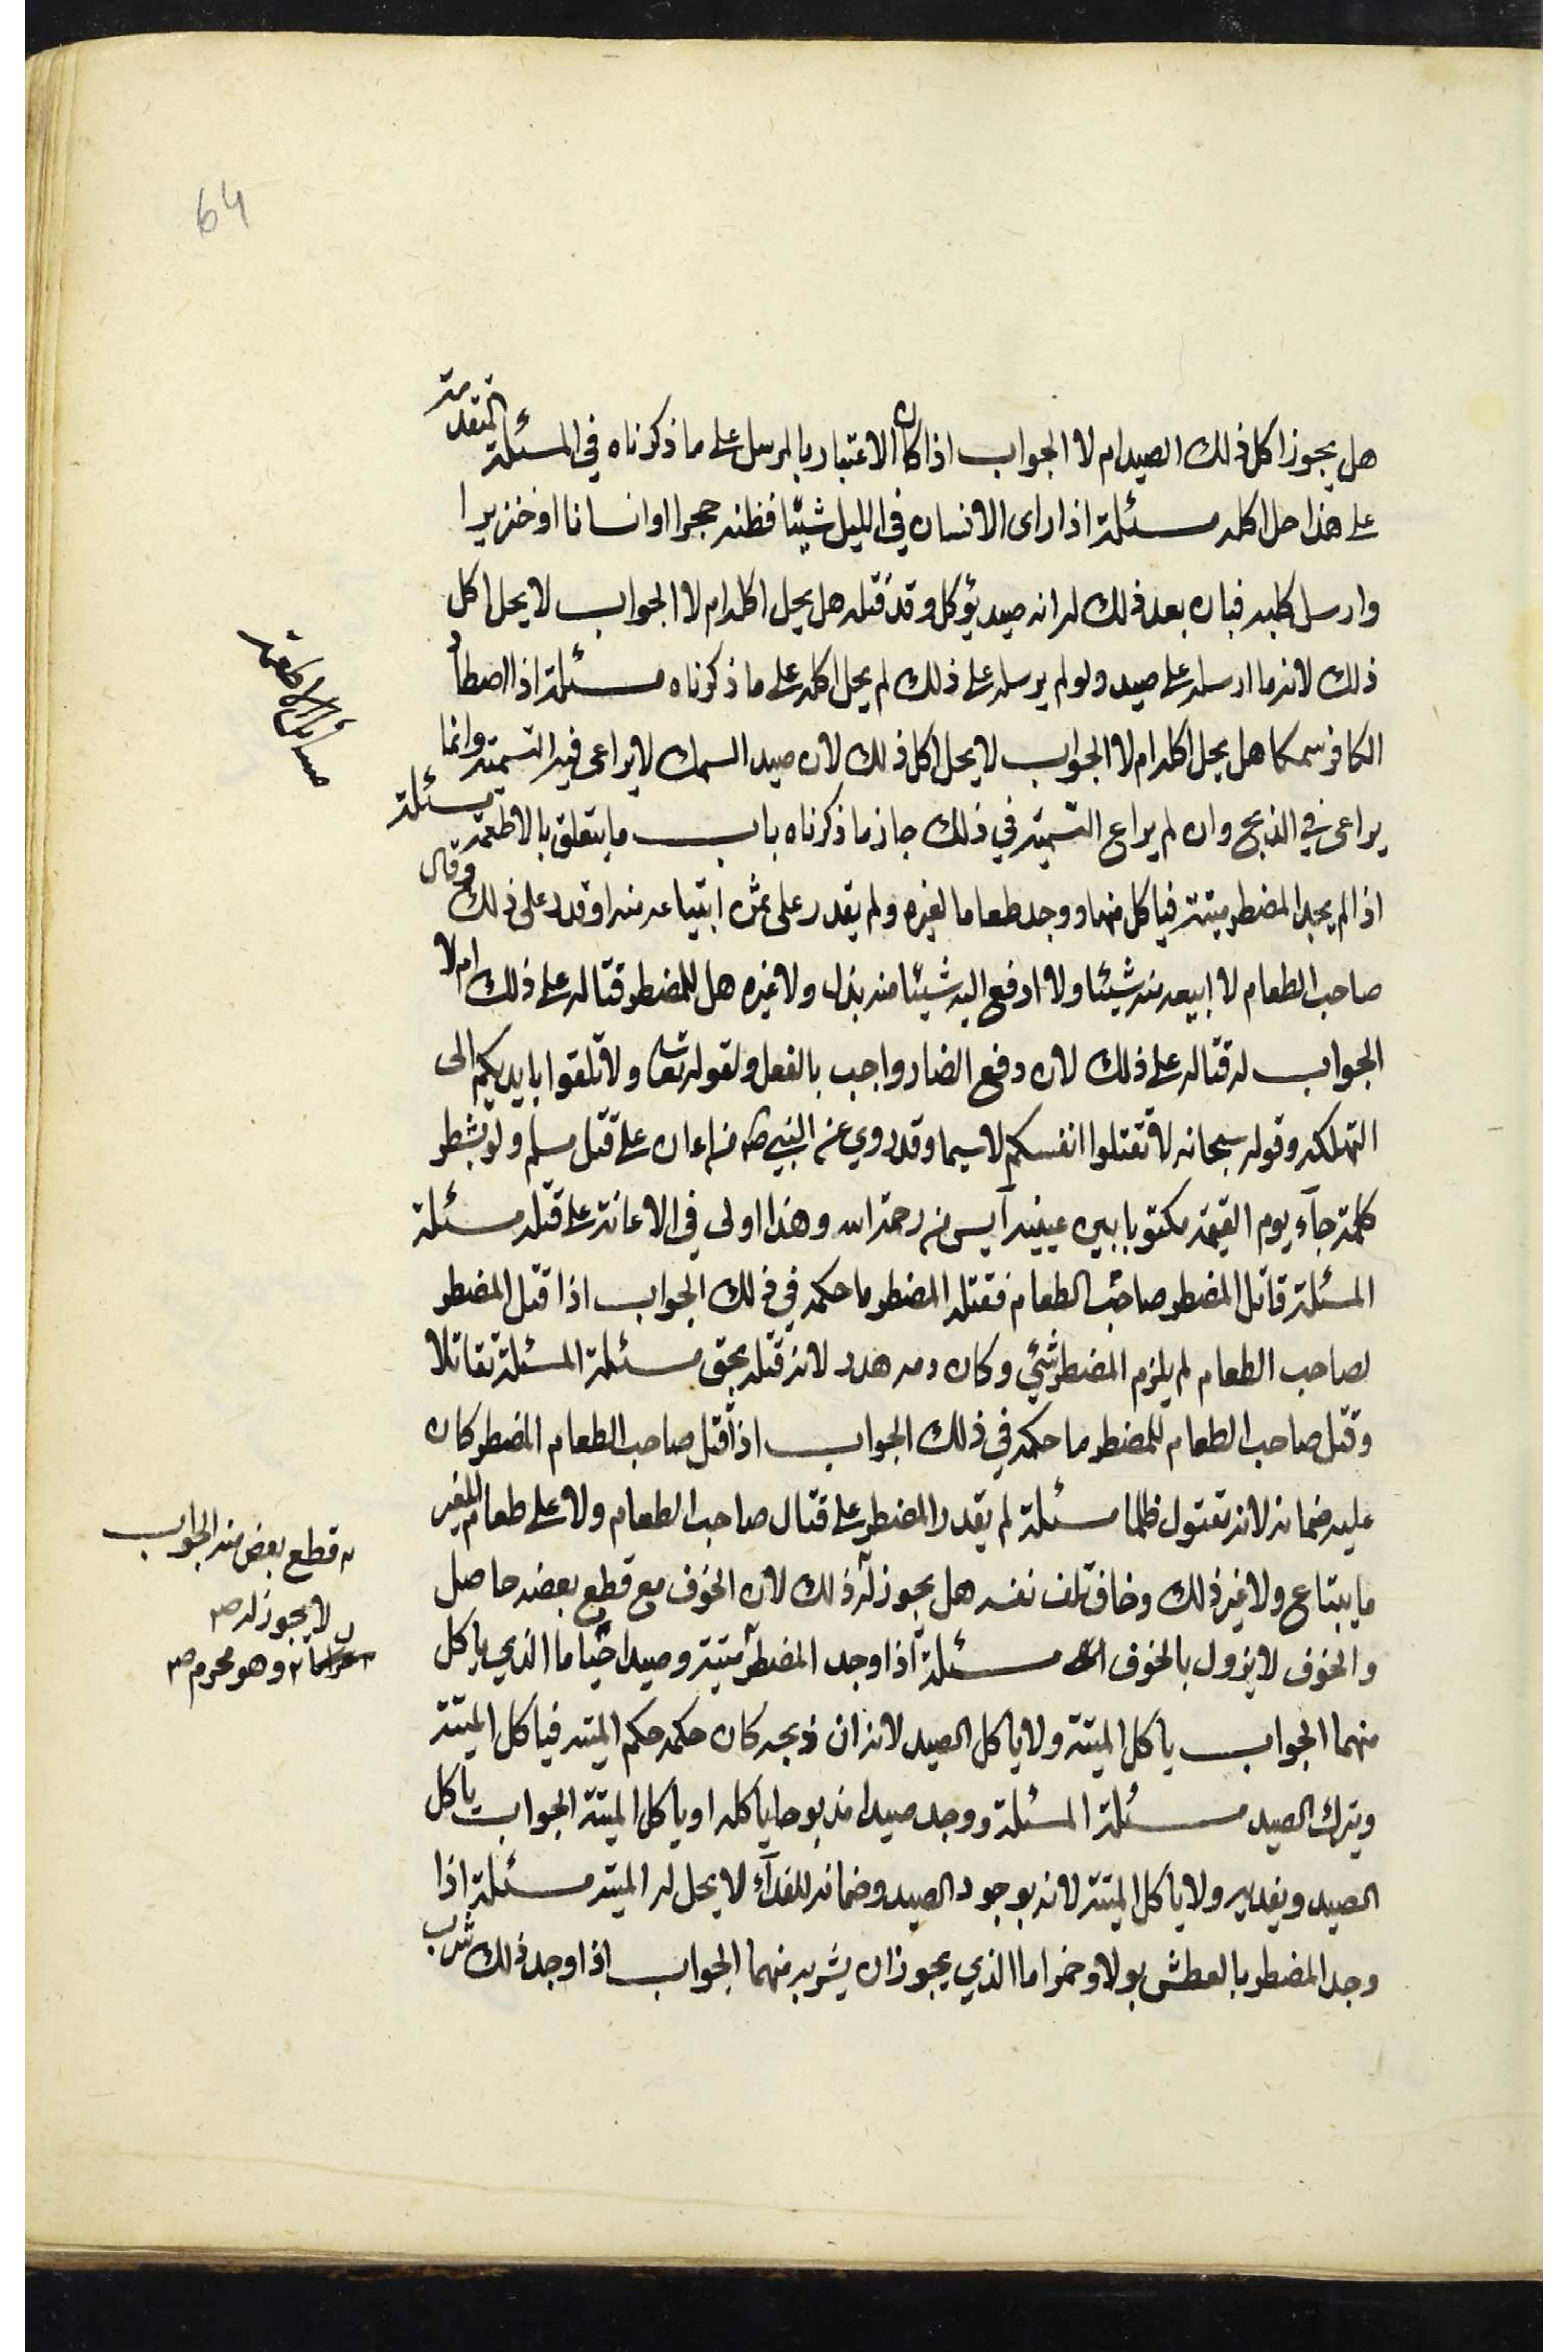 64
هل يجوز اكل ذلك الصيد ام لا الجواب اذا كان الاعتبار بالمرسل على ما ذكرناه في المسئلة المتقدمة
على هذا حل اكله مسئلة اذا راى الانسان في الليل شيئا فظنه حجرا او انسانا او خنزيرا
وارسل كلبه فبان بعد ذلك له انه صيد يؤكل وقد قتله هل يحل اكله ام لا الجواب لا يحل اكل
ذلك لانه ما ارسله على صيد ولو لم يرسله على ذلك لم يحل اكله على ما ذكرناه مسئلة اذا اصطاد
الكافر سمكا هل يحل اكله ام لا الجواب لا يحل اكل ذلك لان صيد السمك لا يراعى فيه التسمية وانما
يراعى في الذبح وان لم يراع التسمية في ذلك جاز ما ذكرناه باب ما يتعلق بالاطعمة مسئلة
اذا لم يجد المضطر ميتة فياكل منها ووجد طعاما لغيره ولم يقدر على ثمن ابتياعه منه او قدر على ذلك وقال
صاحب الطعام لا ابيعه منه شيئا ولا ادفع اليه شيئا منه ببذل ولا غيره هل للمضطر قتاله على ذلك ام لا
الجواب له قتاله على ذلك لان دفع المضار واجب بالفعل ولقوله تعالى ولا تلقوا بايديكم الى
التهلكه وقوله سبحانه لا تقتلوا انفسكم لا سيما وقد روي عن النبي ص من اعان على قتل مسلم ولو بشطر
كلمة جآء يوم القيمة مكتوبا بين عينيه آيس من رحمة الله وهذا اولى في الاعانة على قتله مسئلة
المسئلة قاتل المضطر صاحب الطعام فقتله المضطر ما حكمه في ذلك الجواب اذا قتل المضطر
لصاحب الطعام لم يلزم المضطر شئي وكان دمه هدر لانه قتله بحق مسئلة المسئلة تقاتلا
وقتل صاحب الطعام للمضطر ما حكمه في ذلك الجواب اذا قتل صاحب الطعام المضطر كان
عليه ضمانه لانه مقتول ظلما مسئلة لم يقدر المضطر على قتال صاحب الطعام ولا على طعام للغير
ما يبتاع ولا غير ذلك وخاف تلف نفسه هل يجوز له ذلك لان الخوف مع قطع بعضه حاصل
والخوف لا يزول بالخوف مسئلة اذا وجد المضطر ميتة وصيدا حيا ما الذي ياكل
منهما الجواب ياكل الميتة ولا ياكل الصيد لانه ان ذبحه كان حكمه حكم الميته فياكل الميتة
ويترك الصيد مسئلة المسئلة ووجد صيدا مذبوحا ياكله او ياكل الميتة الجواب ياكل
الصيد ويفديه ولا ياكل الميتة لانه بوجود الصيد وضمانه للفدآء لا يحل له الميته مسئلة اذا
وجد المضطر بالعطش بولا وخمرا ما الذي يجوز ان يشربه منهما الجواب اذا وجد ذلك شرب
مسائل الاطعمة
قطع بعض منه الجواب
لا يجوز له ص
وهو محرم ص